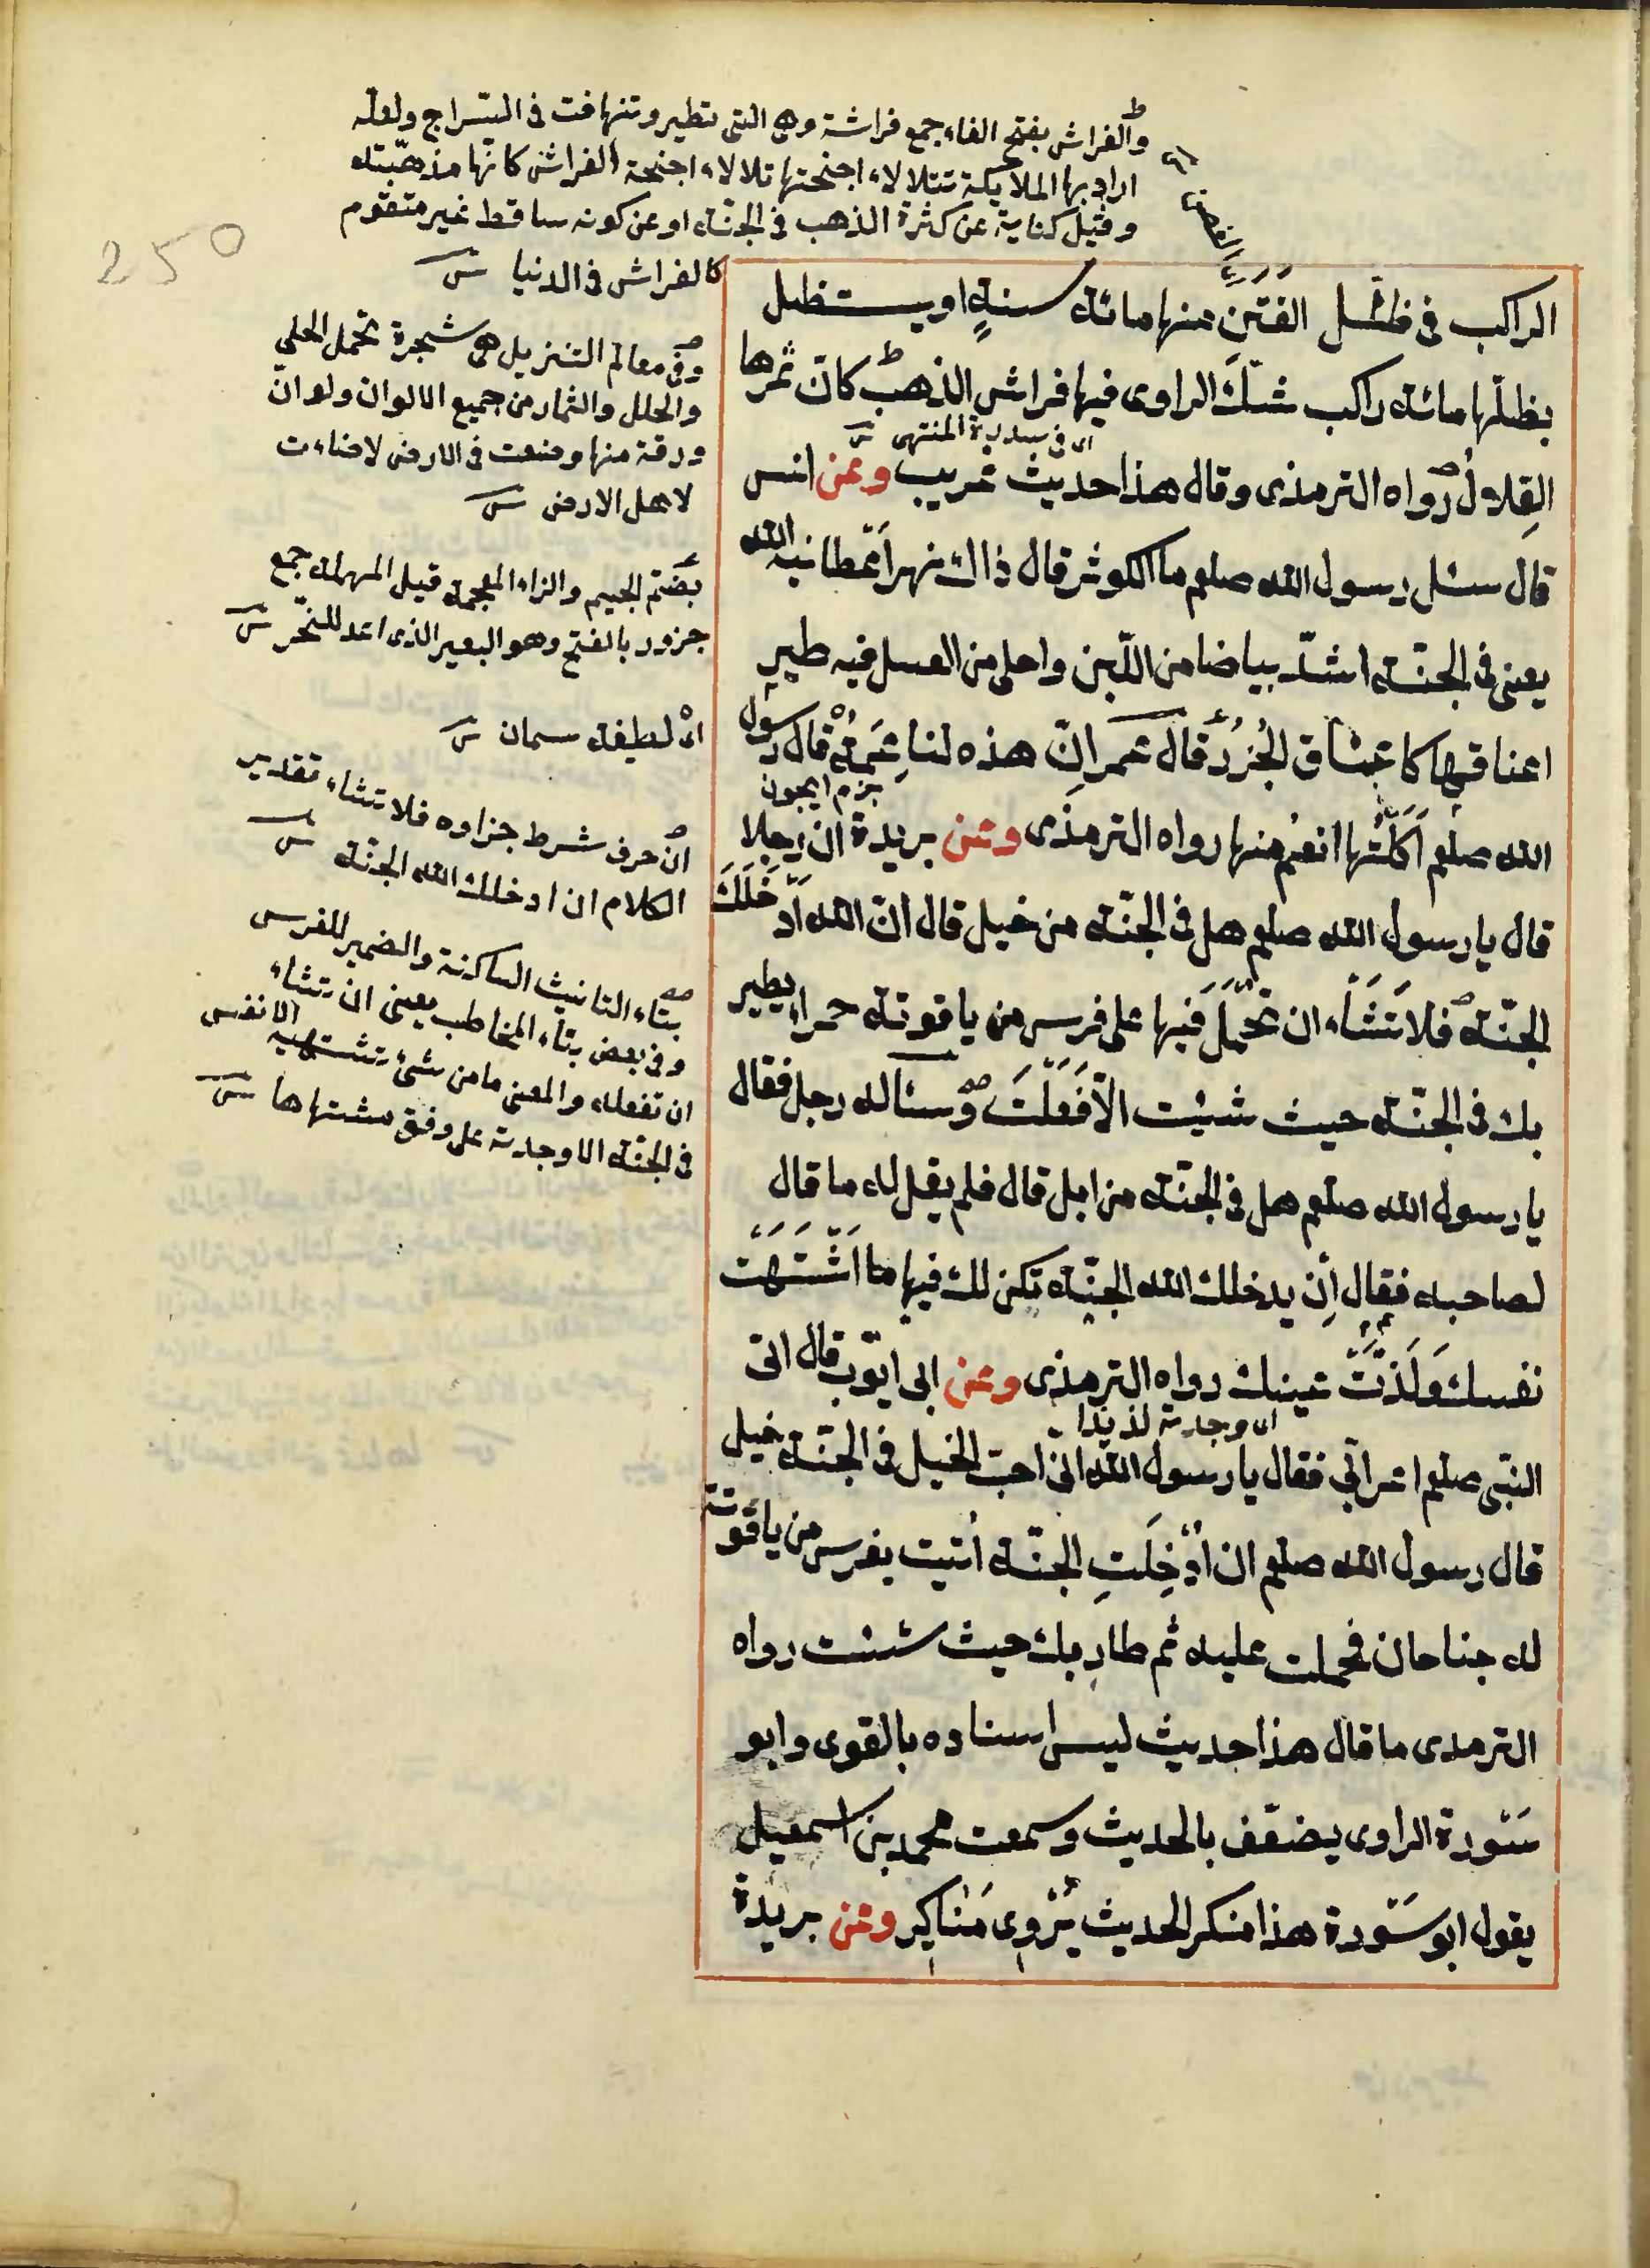 والفراش بفتح الفاء جمع فراشة وهى التى تطير وتتهافت فى السراج ولعله
اراد بها الملايكة تتلالاء اجنحتها تلالاء اجنحة الفراش كانها مذهبته
وقيل كناية عن كثرة الذهب فى الجنة او عن كونه ساقط غير متقوم
كالفراش فى الدنيا
250
الراكب فى ظل الفَنَنِ منها مائة سنةٍ او يستظل
بظلها مائة راكب شكّ الراوى فيها فراش الذهب كان ثمرها
اى فى سدرة المنتهى
القِلال رواه الترمذى وقال هذا حديث غريب وعن انس
قال سئل رسول الله صلعم ما الكوثر قال ذاك نهر اَعْطانيه الله
يعنى فى الجنة اشدّ بياضا من اللّبن واحلى من العسل فيه طير
اعناقها كاعناق الجُزُر قال عمر انّ هذه لناعمة قال رسول
الله صلعم اَكَلَتُها انعم منها رواه الترمذى وعن بريدة ان رجلا
قال يا رسول الله صلعم هل فى الجنّة من خيل قال انّ الله اَدْخَلَكَ
الجنّة فلا تَشَاء ان تُحْمَل فيها على فرس من ياقوتة حمراء يطير
بك فى الجنّة حيث شئت الّا فَعَلَتْ وسئاله رجل فقال
يا رسول الله صلعم هل فى الجنّة من ابل قال فلم يقل له ما قال
لصاحبه فقال اِن يدخلك الله الجنّة تكن لك فيها ما اَشْتَهَتْ
نفسك وَلَذَّتْ عينك رواه الترمذى وعن ابى ايّوب قال اتى
اى وجدته لذيذا
النّبى صلعم اعرابّى فقال يا رسول الله انّى احبّ الخيل فى الجنّة خيل
قال رسول الله صلعم ان اُدْخِلَتِ الجنّة اُتيت بفرس من ياقوتة
له جناحان فحملت عليه ثم طار بك حيث شئت رواه
الترمدى ما قال هذا حديث ليس اسناده بالقوى وابو
سَوْرة الراوى يضعّف بالحديث وسمعت محمد بن اسمعيل
يقول ابو سَوْرة هذا منكر الحديث يَرْوِى مَنَاكِير وعن بريدة
وفى معالم التنزيل هى شجرة تحمل الحلى
والحلل والثمار من جميع الالوان ولو انّ
ورقة منها وضعت فى الارض لاضاءت
لاهل الارض
بضم الجيم والزاء المعجمة قبل المهملة جمع
جزور بالفتح وهو البعير الذى اعد للنّحر
اى لطيفة سمان
ان حرف شرط جزاوه فلا تشاء تقدير
الكلام ان ادخلك الله الجنّة
بتاء التانيث الساكنة والضمير للفرس
وفى بعض بتاء المخاطب يعنى ان تشاء
ان تفعله والمعنى ما من شئ تشتهيه الانفس
فى الجنّة الا وجدته على وفق مشتهاها